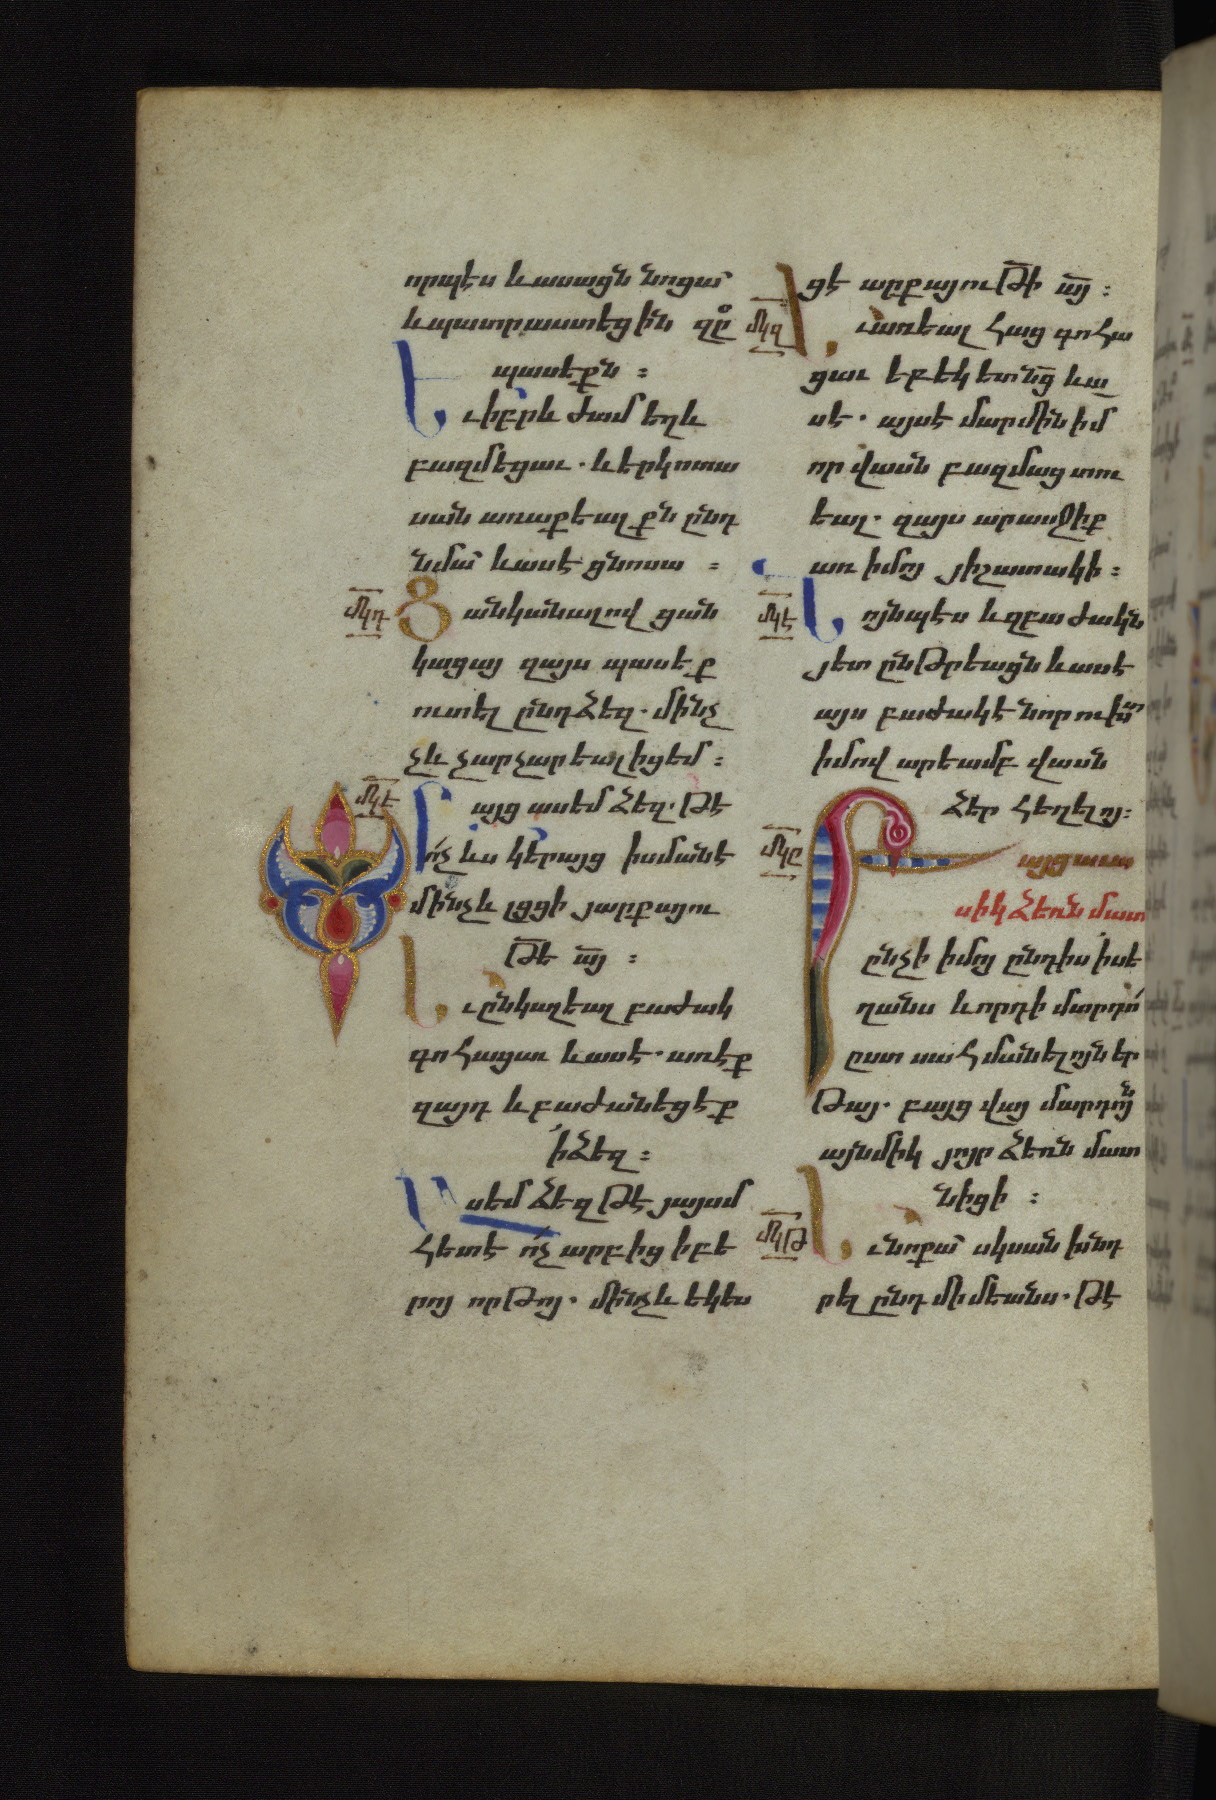 որպէս և ասացն նոցա՝
և պատրաստեցին զը
պասեքն :
Եւ իբրև ժամ եղև
բազմեցաւ . և երկոտա
սան առաքեալքն ընդ
նմա՝ և ասէ ցնոսա :
մկդ
Ցանկանալով ցան
կացայ զայս պասեք
ուտել ընդ ձեզ . մինչ
չև չարչարեալ իցեմ :
մկե
Բայց ասեմ ձեզ . թէ
ո՛չ ևս կերայց ի սմանէ
մինչև լցցի յարքայու
թե ա՟յ :
Եւ ընկալեալ բաժակ
գոհացաւ և ասէ . առէք
զայդ և բաժանեցէք
ի ձեզ :
Ասեմ ձեզ թէ յայսմ
հետէ ո՛չ արբից ի բե
րոյ որթոյ . մինչև եկես
ցէ արքայութի ա՟յ :
մկզ
Եւ առեալ հաց գոհա
ցաւ եբեկ ետ նց և ա
սէ . այսէ մարմին իմ
որ վասն բազմաց տու
եալ . զայս արասջիք
առ իմոյ յիշատակի :
մկէ
Նոյնպէս և զբաժակն
յետ ընթրեացն և ասէ
այս բաժակէ նոր ուխտ
իմով արեամբ վասն
ձեր հեղելոյ :
մկը
Բայց աւա
սիկ ձեռն մատ
ընչի իմոյ ընդիս ի սե
ղանս և որդի մարդո՛
ըստ սահմանելոյն եր
թայ . բայց վայ մարդոյն
այնմիկ յոյր ձեռն մատ
նիցի :
մկթ
Եւ նոքա՝ սկսան խնդ
րել ընդ միմեանս . թէ